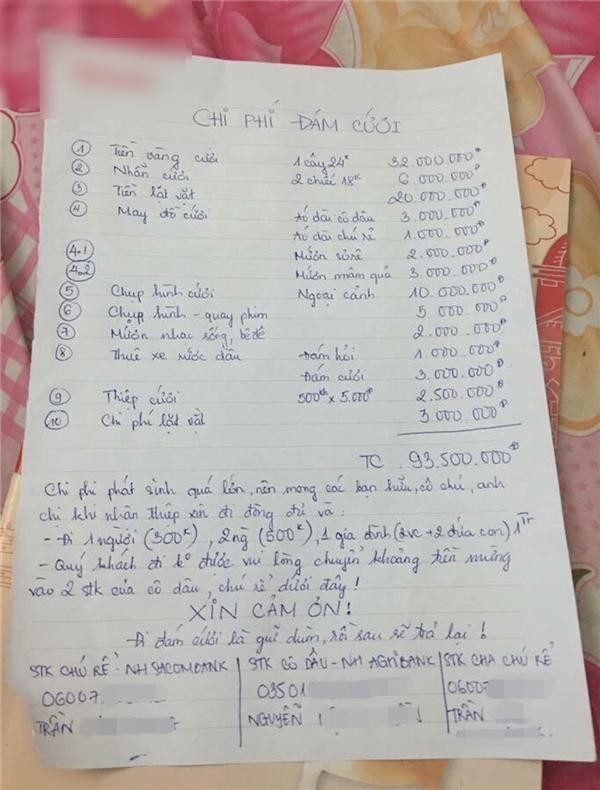 CHI PHÍ ĐÁM CƯỚI
① Tiền vàng cưới 1 cây 24k 32.000.000đ
② Nhẫn cưới 2 chiếc 18k 6.000.000đ
③ Tiền lát vắt 20.000.000đ
④ May đồ cưới Áo dài cô dâu 3.000.000đ
Áo dài chú rể 1.000.000đ
4.1 Mướn sơ rê 2.000.000đ
4.2 Mướn mâm quả 3.000.000đ
⑤ Chụp hình cưới Ngoại cảnh 10.000.000đ
⑥ Chụp hình - quay phim 5.000.000đ
⑦ Mướn nhạc sống, bê đồ 2.000.000đ
⑧ Thuê xe rước dâu Đám hỏi 1.000.000đ
Đám cưới 3.000.000đ
⑨ Thiệp cưới 500th x 5.000đ 2.500.000đ
⑩ Chi phí lặt vặt 3.000.000đ
TC 93.500.000đ
Chi phí phát sinh quá lớn, nên mong các bạn hữu, cô chú, anh
chị khi nhân thiệp xin đi đông đủ và:
- Đi 1 người (300k), 2ng (500k), 1 gia đình (2vc + 2 đứa con) 1Tr
- Quý khách đi ko được vui lòng chuyển khoảng tiền mừng
vào 2 stk của cô dâu, chú rể dưới đây!
XIN CẢM ƠN!
Đi đám cưới là gửi dùm, rồi sau sẽ trả lại!
STK CHÚ RỂ: NH SACOMBANK STK CÔ DÂU - NH AGRIBANK STK CHA CHÚ RỂ
06007 03501 06007
TRẦN NGUYỄN TRẦN